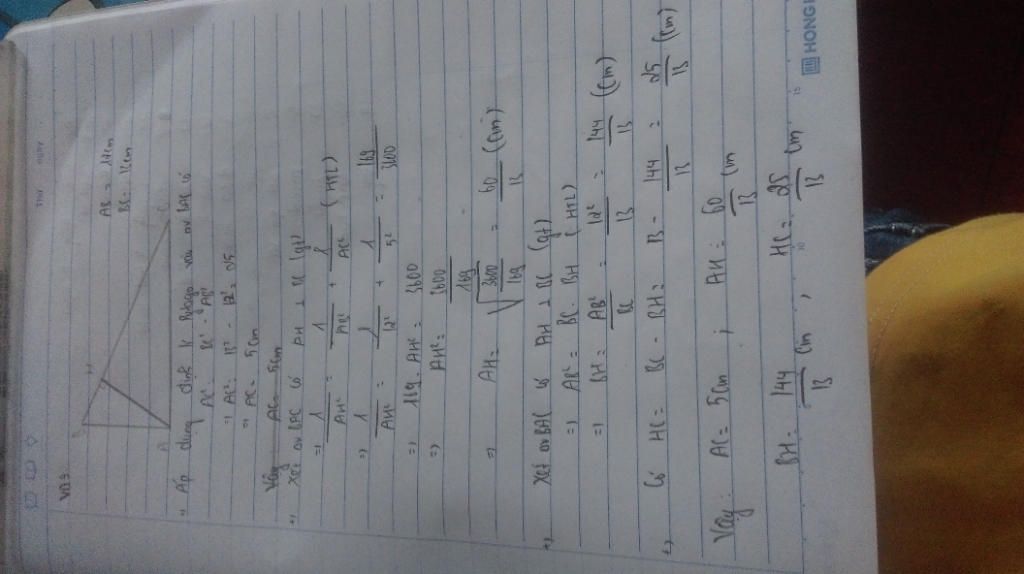 THỨ NGÀY
VD3
B
H
A
C
AB = 12cm
BC = 13cm
Áp dụng định lí Pitago vào ΔvBAC có
AC² = BC² - AB²
=> AC² = 13² - 12² = 25
=> AC = 5cm
Vậy AC = 5cm
+) Xét ΔvBAC có AH ⊥ BC (gt)
=> 1/AH² = 1/AB² + 1/AC² (HTL)
=> 1/AH² = 1/12² + 1/5² = 169/3600
=> 169.AH² = 3600
=> AH² = 3600/169
=> AH = √(3600/169) = 60/13 (cm)
+) Xét ΔvBAC có AH ⊥ BC (gt)
=> AB² = BC . BH (HTL)
=> BH = AB²/BC = 12²/13 = 144/13 (cm)
+) Có HC = BC - BH = 13 - 144/13 = 25/13 (cm)
Vậy: AC = 5cm ; AH = 60/13 cm
BH = 144/13 cm , HC = 25/13 cm